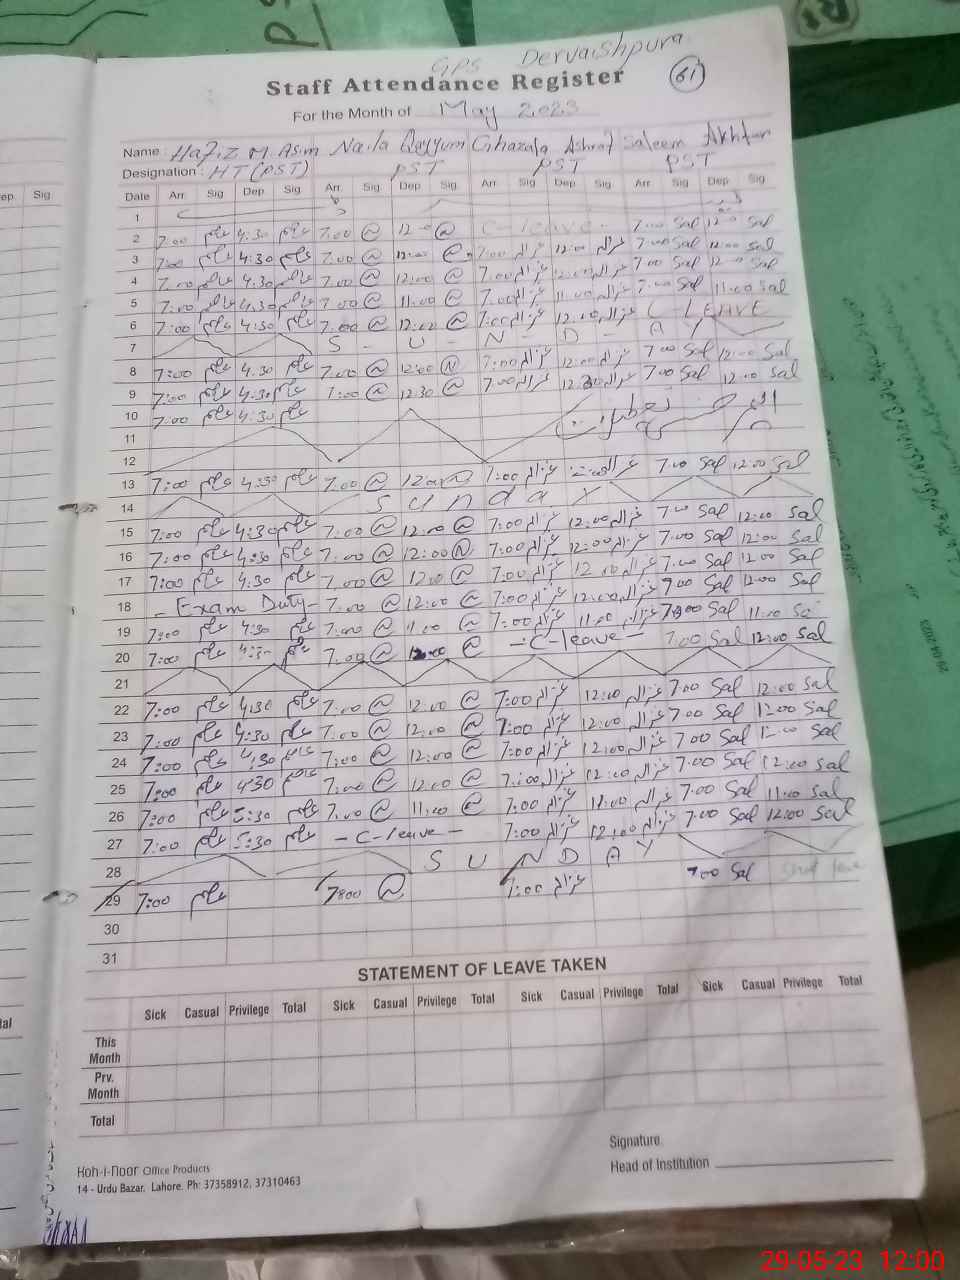 GPS Dervaishpura
Staff Attendance Register
61
For the Month of May 2023
Name : Hafiz M. Asim Naila Qayyum Ghazala Ashraf Saleem Akhtar
Designation : HT (PST) PST PST PST
Date Arr Sig Dep Sig Arr Sig Dep Sig Arr Sig Dep Sig Arr Sig Dep Sig
1
2 7:00 عاصم 4:30 عاصم 7.00 @ 12.00 @ C-leave. 7.00 Sal 12.00 Sal
3 7:00 عاصم 4.30 عاصم 7.00 @ 12.00 @ 7:00 غزالہ 12:00 غزالہ 7.00 Sal 12:00 Sal
4 7:00 عاصم 4.30 عاصم 7.00 @ 12:00 @ 7:00 غزالہ 12:00 غزالہ 7.00 Sal 12:00 Sal
5 7:00 عاصم 4.30 عاصم 7.00 @ 11.00 @ 7.00 غزالہ 11.00 غزالہ 7.00 Sal 11:00 Sal
6 7:00 عاصم 4:30 عاصم 7.00 @ 12:00 @ 7:00 غزالہ 12:00 غزالہ C LEAVE
7 S - U - N - D - A Y
8 7:00 عاصم 4.30 عاصم 7.00 @ 12:00 @ 7:00 غزالہ 12:00 غزالہ 7.00 Sal 12:00 Sal
9 7:00 عاصم 4:30 عاصم 7:00 @ 12.30 @ 7:00 غزالہ 12.30 غزالہ 7.00 Sal 12.00 Sal
10 7:00 عاصم 4:30 عاصم
11
12
13 7:00 عاصم 4:30 عاصم 7.00 @ 12.00 @ 7:00 غزالہ غزالہ 7.00 Sal 12:00 Sal
14 S u n d a y
15 7:00 عاصم 4:30 عاصم 7.00 @ 12.00 @ 7:00 غزالہ 12:00 غزالہ 7.00 Sal 12:00 Sal
16 7:00 عاصم 4:30 عاصم 7.00 @ 12:00 @ 7:00 غزالہ 12:00 غزالہ 7.00 Sal 12:00 Sal
17 7:00 عاصم 4:30 عاصم 7.00 @ 12:00 @ 7:00 غزالہ 12:00 غزالہ 7.00 Sal 12:00 Sal
18 - Exam Duty - 7.00 @ 12:00 @ 7:00 غزالہ 12:00 غزالہ 7.00 Sal 12:00 Sal
19 7:00 عاصم 4:30 عاصم 7.00 @ 11.00 @ 7:00 غزالہ 11.00 غزالہ 7.00 Sal 11:00 Sal
20 7:00 عاصم 4:30 عاصم 7.00 @ 12:00 @ - C-leave - 7.00 Sal 12:00 Sal
21
22 7:00 عاصم 4:30 عاصم 7.00 @ 12:00 @ 7:00 غزالہ 12:00 غزالہ 7.00 Sal 12:00 Sal
23 7:00 عاصم 4:30 عاصم 7.00 @ 12.00 @ 7:00 غزالہ 12:00 غزالہ 7.00 Sal 12:00 Sal
24 7:00 عاصم 4:30 عاصم 7:00 @ 12.00 @ 7:00 غزالہ 12:00 غزالہ 7.00 Sal 12:00 Sal
25 7:00 عاصم 4:30 عاصم 7.00 @ 12:00 @ 7:00 غزالہ 12:00 غزالہ 7.00 Sal 12:00 Sal
26 7:00 عاصم 5:30 عاصم 7.00 @ 11.00 @ 7:00 غزالہ 11:00 غزالہ 7.00 Sal 11:00 Sal
27 7:00 عاصم 5:30 عاصم - C-leave - 7:00 غزالہ 12:00 غزالہ 7.00 Sal 12:00 Sal
28 S U N D A Y
29 7:00 عاصم 7:00 @ 7:00 غزالہ 7.00 Sal Shot leave
30
31
STATEMENT OF LEAVE TAKEN
Sick Casual Privilege Total Sick Casual Privilege Total Sick Casual Privilege Total Sick Casual Privilege Total
This Month
Prv. Month
Total
Signature
Head of Institution
Koh-i-Noor Office Products
14 - Urdu Bazar, Lahore. Ph: 37358912, 37310463
29-05-23 12:00